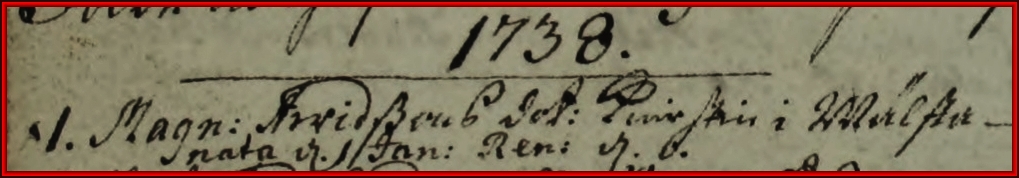 1738.
1. Magn: Arvidssons dot: Kierstin i Walsta-
nata d. 1 Jan: Ren: d. 6.